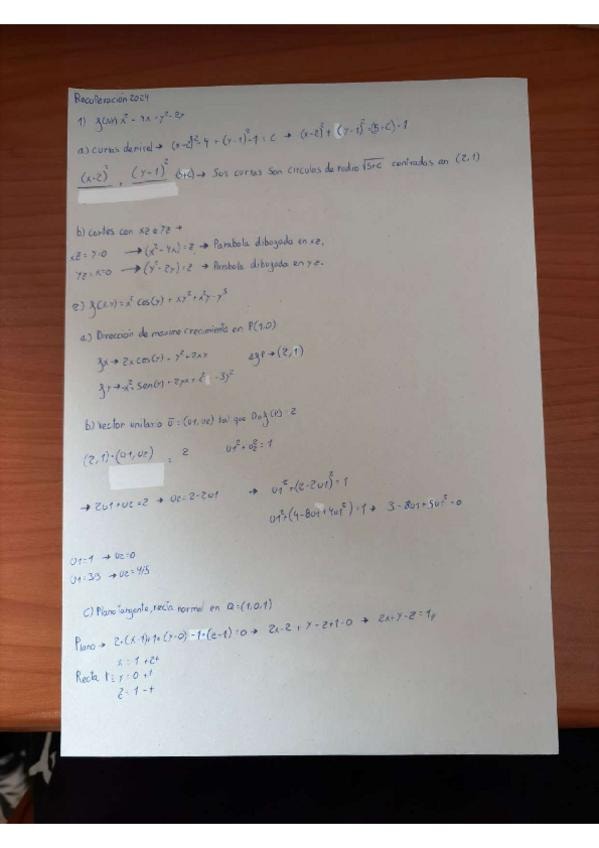 Recuperación 2024
1) f(x,y) x² - 4x + y² - 2y
a) curvas de nivel → (x-2)² - 4 + (y-1)² - 1 = c → (x-2)² + (y-1)² = (5+c) - 1
(x-2)² , (y-1)² (5+c) → Sus curvas son circulos de radio √5+c centradas en (2,1)
b) cortes con xz e yz →
xz = y=0 → (x² - 4x) = z → Parabola dibujada en xz,
yz = x=0 → (y² - 2y) = z → Parabola dibujada en yz.
2) f(x,y) = x² cos(y) + xy² + x²y - y³
a) Dirección de maximo crecimiento en P(1,0)
fx → 2x cos(y) + y² + 2xy → (2,1)
fy → -x² sen(y) + 2yx + x² - 3y²
b) vector unitario ū = (u1, u2) tal que Dūf(P) = 2
(2,1) · (u1, u2) = 2 u1² + u2² = 1
→ 2u1 + u2 = 2 → u2 = 2 - 2u1 → u1² + (2-2u1)² = 1
u1² + (4 - 8u1 + 4u1²) = 1 → 3 - 8u1 + 5u1² = 0
u1 = 1 → u2 = 0
u1 = 3/5 → u2 = 4/5
c) Plano tangente, recta normal en Q = (1,0,1)
Plano → 2·(x-1) + 1·(y-0) - 1·(z-1) = 0 → 2x-2 + y - z + 1 = 0 → 2x + y - z = 1
x = 1 + 2t
Recta r ≡ y = 0 + t
z = 1 - t